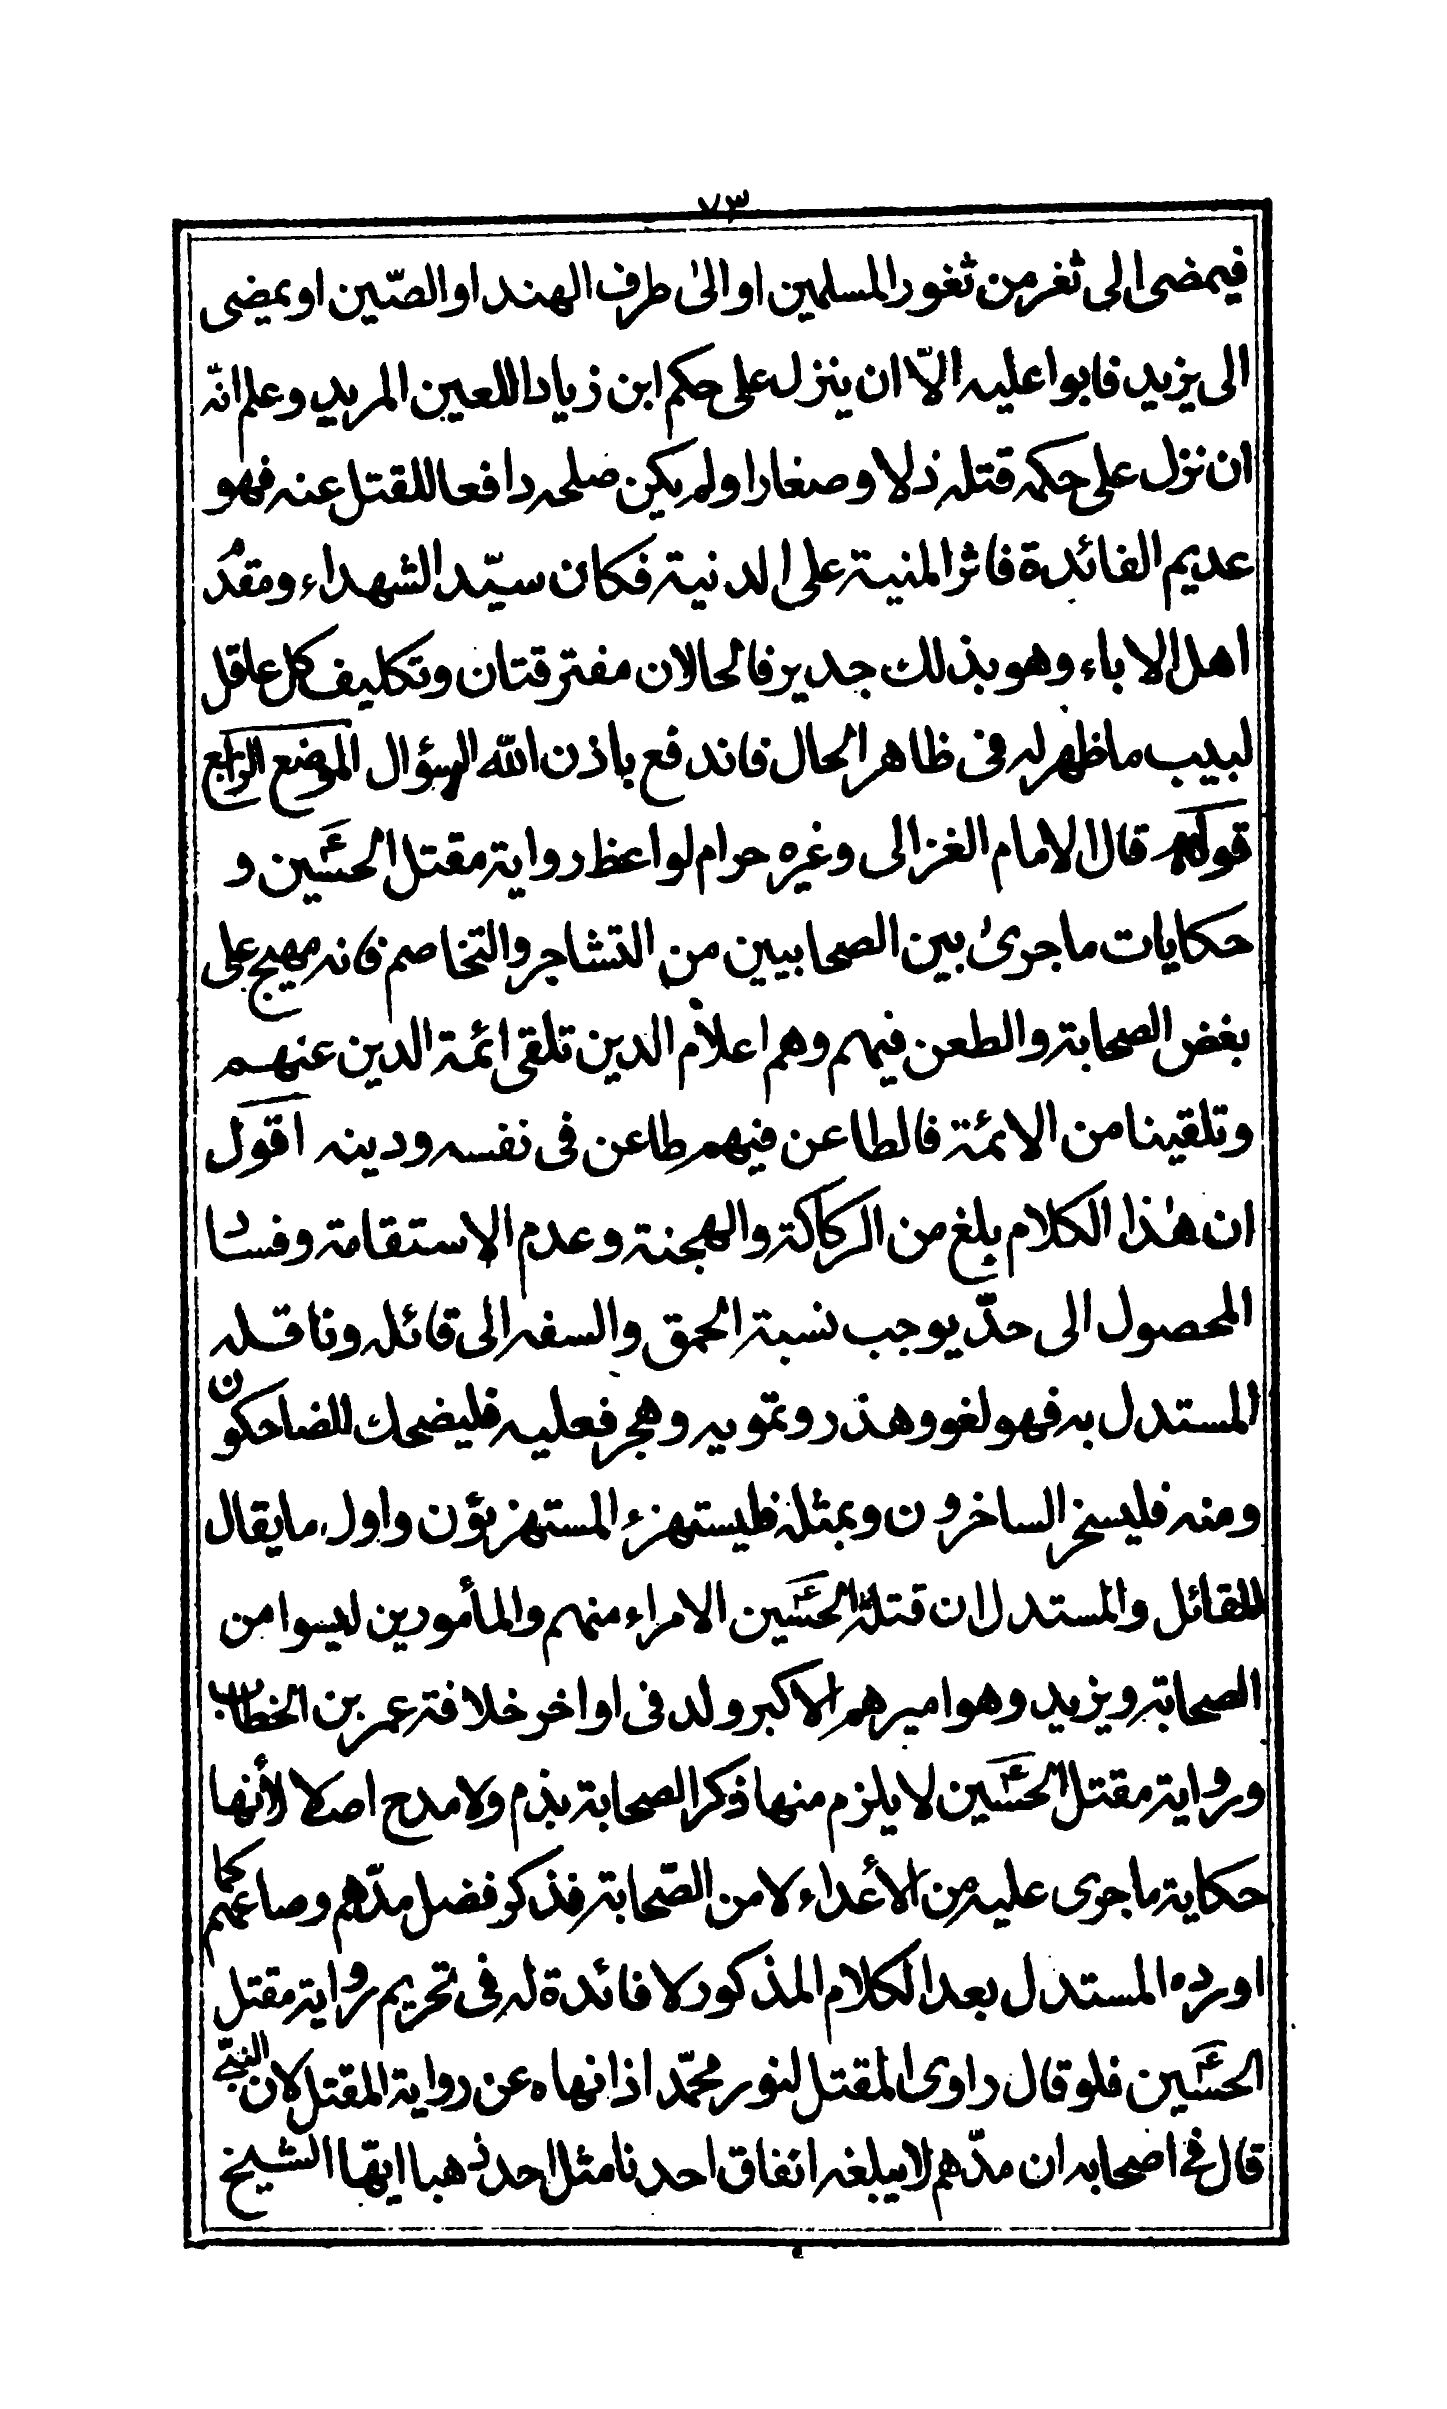 ٧٣
فيمضى الى ثغر من ثغور المسلمين او الىٰ طرف الهند او الصّين او يمضى
الى يزيد فابوا عليه الّا ان ينزل على حكم ابن زياد اللعين المريد وعلم انّه
ان نزل على حكمه قتله ذلا وصغارا ولم يكن صلحه دافعا للقتل عنه فهو
عديم الفائدة فاثر المنية على الدنية فكان سيّد الشهداء ومقدم
اهل الاباء وهو بذلك جدير فالحالان مفترقتان وتكليف كل عاقل
لبيب ما ظهر له فى ظاهر الحال فاندفع باذن الله السؤال الموضع الرابع
قولهم قال الامام الغزالى وغيره حرام لواعظ رواية مقتل الحسين و
حكايات ما جرىٰ بين الصحابيين من التشاجر والتخاصم فانه مهيج على
بغض الصحابة والطعن فيهم وهم اعلام الدين تلقى ائمة الدين عنهم
وتلقينا من الائمة فالطاعن فيهم طاعن فى نفسه ودينه اقول
ان هٰذا الكلام بلغ من الركاكة والهجنة وعدم الاستقامة وفساد
المحصول الى حدّ يوجب نسبة الحمق والسفه الى قائله وناقله
المستدل به فهو لغو وهذر وتمويه وهجر فعليه فليضحك الضاحكون
ومنه فليسخر الساخرون وبمثله فليستهزء المستهزؤن واول ما يقال
للقائل والمستدل ان قتلة الحسين الامراء منهم والمأمورين ليسوا من
الصحابة ويزيد وهو اميرهم الاكبر ولد فى اواخر خلافة عمر بن الخطاب
ورواية مقتل الحسين لا يلزم منها ذكر الصحابة بذم ولا مدح اصلا لأنها
حكاية ما جرى عليه من الأعداء لا من الصّحابة فذكر فضل مدّهم وصاعهم كما
اورده المستدل بعد الكلام المذكور لا فائدة له فى تحريم رواية مقتل
الحسين فلو قال راوى المقتل لنور محمّد اذا نهاه عن رواية المقتل لان النبى
قال فى اصحابه ان مدّهم لا يبلغه انفاق احدنا مثل احد ذهبا ايّها الشيخ